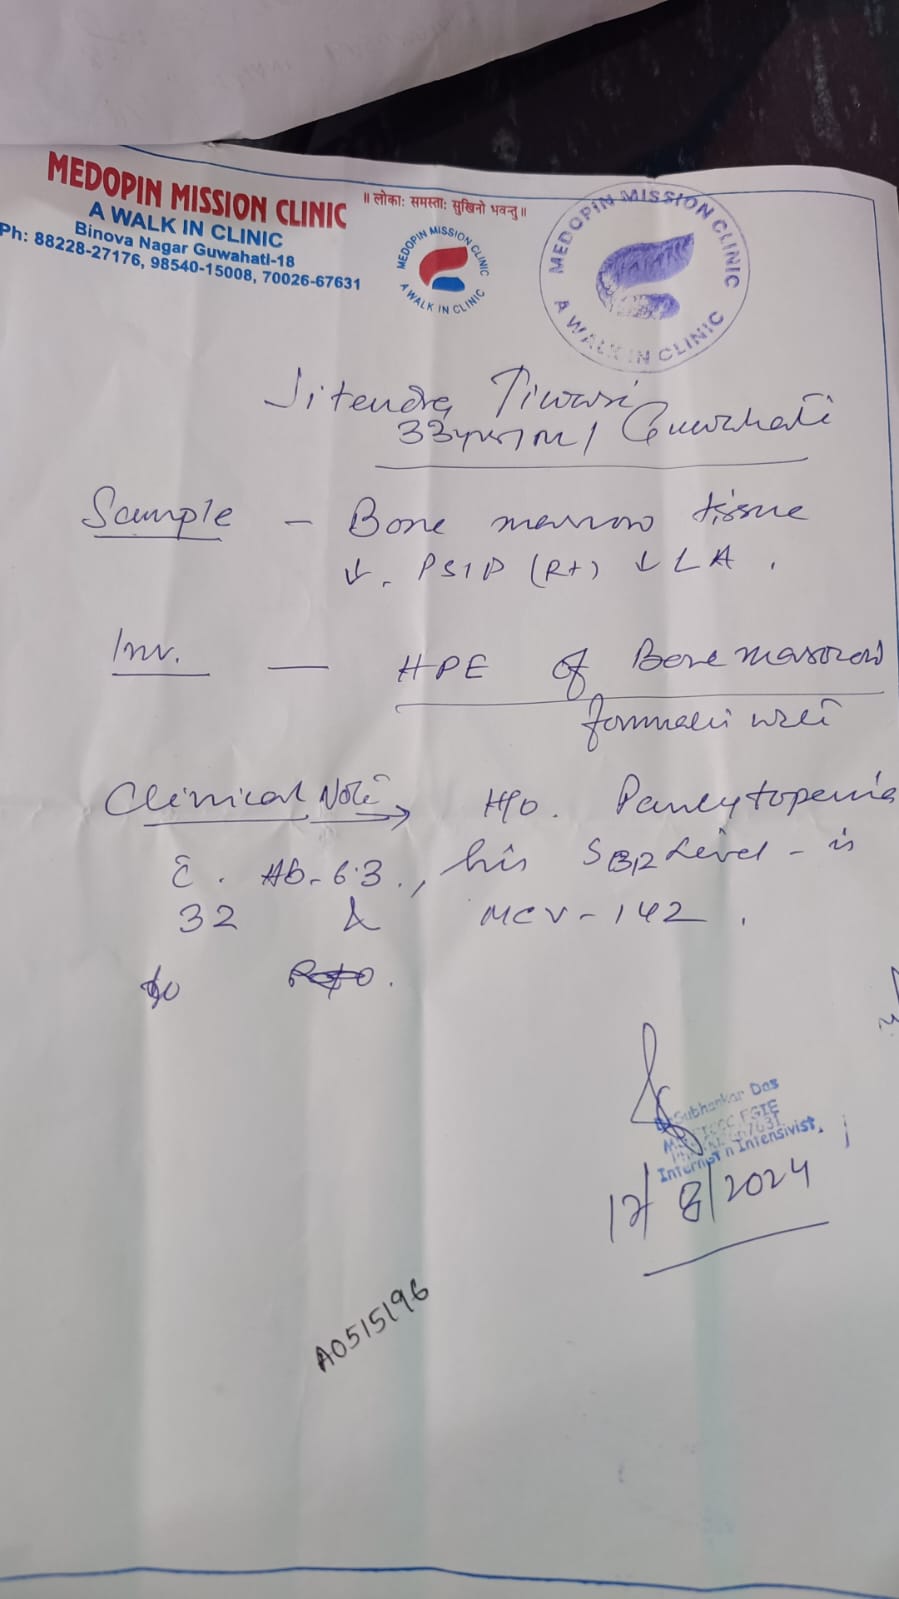 MEDOPIN MISSION CLINIC
A WALK IN CLINIC
Binova Nagar Guwahati-18
Ph: 88228-27176, 98540-15008, 70026-67631
॥ लोकाः समस्ताः सुखिनो भवन्तु ॥
MEDOPIN MISSION CLINIC
A WALK IN CLINIC
MEDOPIN MISSION CLINIC
A WALK IN CLINIC
Jitendra Tiwari
33yrs/m/ Guwahati
Sample - Bone marrow tissue
↓. PSIP (Rt) ↓ LA.
Inv. — HPE of Bone marrow
formalin
Clinical Note → H/o. Pancytopenia
c̄. Hb-6.3., his SB12 Level - is
32 & MCV-142.
Subhankar Das
Intensivist.
17/8/2024
A0515196